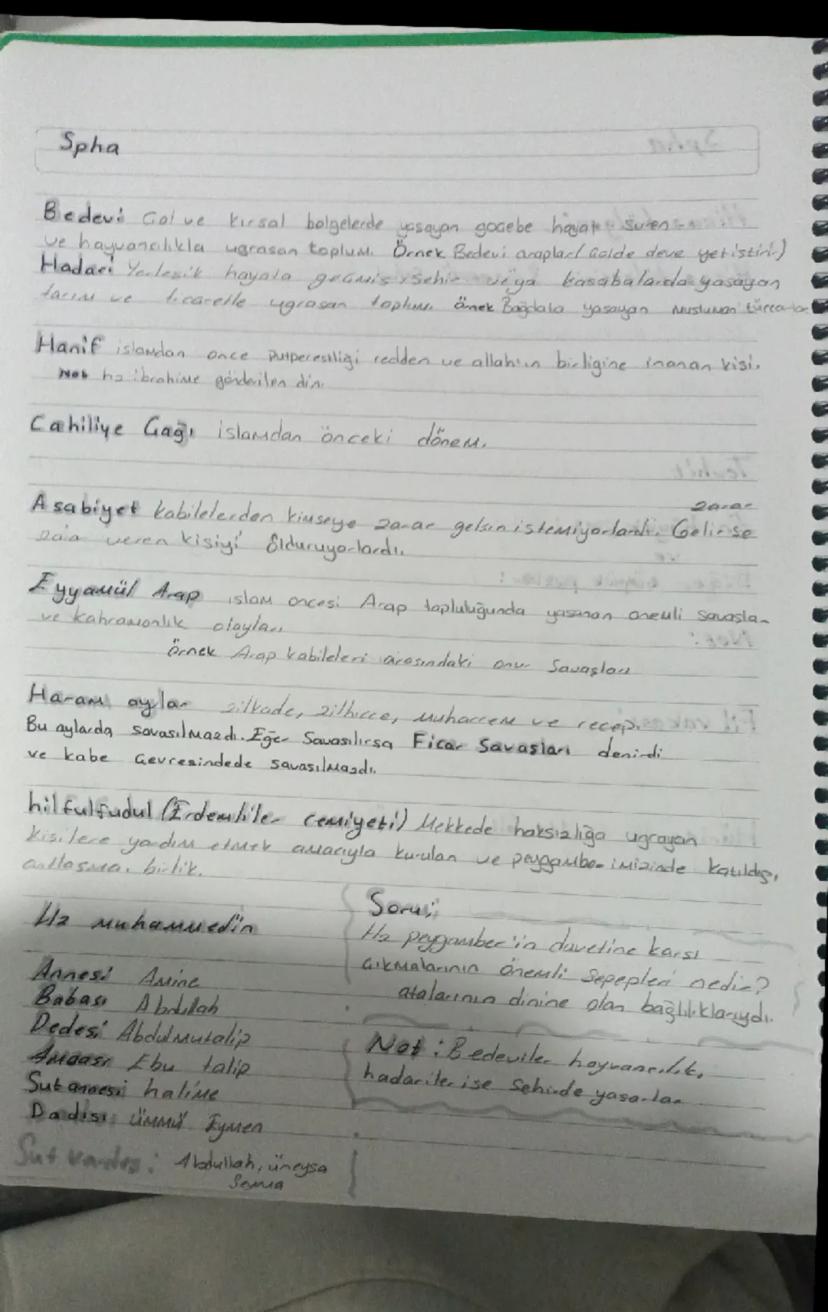 Spha
Bedevi Çöl ve kırsal bölgelerde yaşayan göcebe hayatı süren
ve hayvancılıkla ugrasan toplum. Örnek Bedevi araplar( Çölde deve yetistirir)
Hadari Yerlesik hayata geçmis, sehir veya kasabalarda yasayan
tarım ve ticaretle ugrasan toplum. örnek Bağdata yasayan musluman tüccarlar
Hanif islamdan önce putperestliği redden ve allah'ın birligine inanan kisi.
Not hz ibrahime gönderilen din.
Cahiliye Çağı islamdan önceki dönem.
zarar
Asabiyet kabilelerden kimseye zarar gelsin istemiyorlardı. Gelirse
zarar veren kisiyi ölduruyorlardı.
Eyyamül Arap islam oncesi Arap topluluğunda yasanan onemli savaslar
ve kahramanlık olayları
örnek Arap kabileleri arasındaki onur Savasları
Haram aylar zilkade, zilhicce, muharrem ve recep.
Bu aylarda savasılmazdı. Eğer Savasılırsa Ficar Savasları denirdi
ve kabe çevresindede savasılmazdı.
hilfulfudul (Erdemliler cemiyeti) Mekkede haksızlığa ugrayan
kisilere yardım etmek amacıyla kurulan ve peygamberimizinde katıldığı
antlasma. birlik.
Hz muhammedin
Annesi Amine
Babası Abdullah
Dedesi Abdulmutalip
Amcası Ebu talip
Sutannesi halime
Dadısı ümmü Eymen
Sut kardes: Abdullah, üneysa
Sema
Soru:
Hz peygamber'in davetine karsı
çıkmalarının önemli sepepleri nedir?
atalarının dinine olan bağlılıklarıydı.
Not: Bedeviler hayvancılık,
hadariler ise sehirde yasarlar